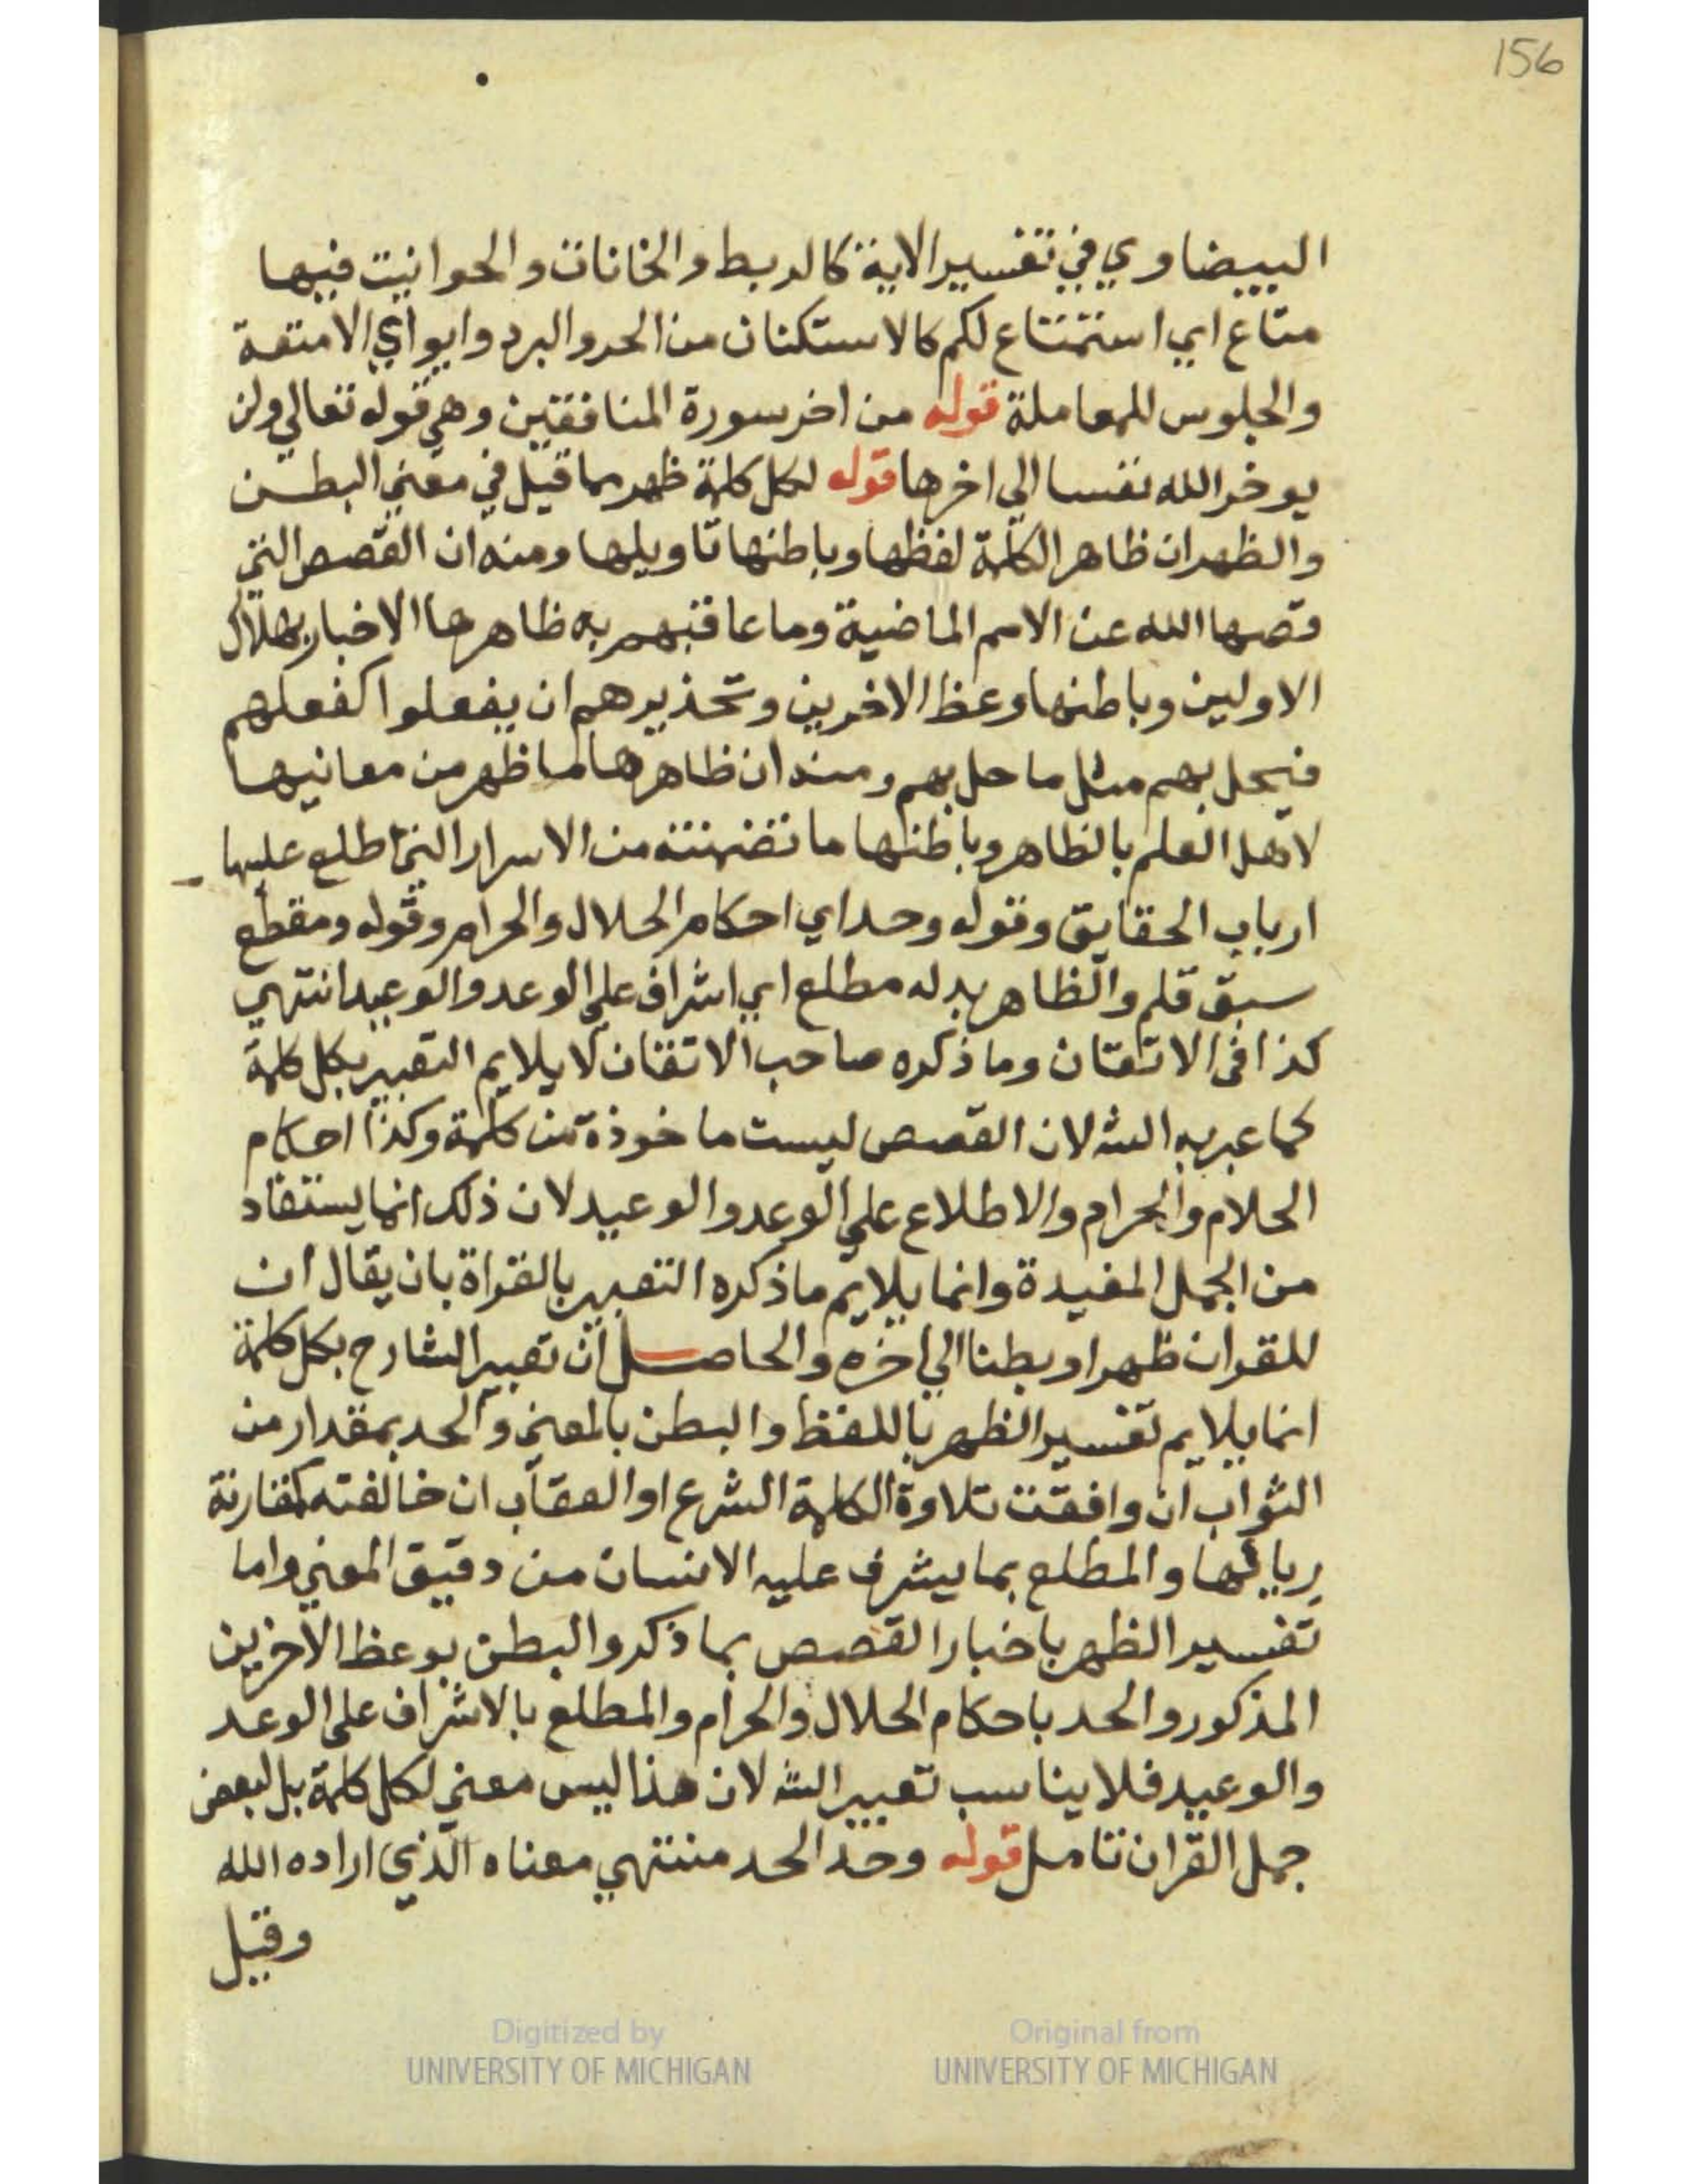 156
البيضاوي في تفسير الاية كالربط والخانات والحوانيت فيها
متاع اي استمتاع لكم كالاستكنان من الحر والبرد وايواي الامتعة
والجلوس للمعاملة قوله من اخر سورة المنافقين وهي قوله تعالي ولن
يوخر الله نفسا الي اخرها قوله لكل كلمة ظهر مما قيل في معني البطن
والظهر ان ظاهر الكلمة لفظها وباطنها تاويلها ومنه ان القصص التي
قصها الله عن الامم الماضية وما عاقبهم به ظاهرها الاخبار بهلاك
الاولين وباطنها وعظ الاخرين وتحذيرهم ان يفعلوا كفعلهم
فيحل بهم مثل ما حل بهم ومنه ان ظاهرها ما ظهر من معانيها
لاهل العلم بالظاهر وباطنها ما تضمنته من الاسرار التي اطلع عليها
ارباب الحقايق وقوله وحد اي احكام الحلال والحرام وقوله ومقطع
سبق قلم والظاهر بدله مطلع اي اشراف علي الوعد والوعيد انتهي
كذا في الاتقان وما ذكره صاحب الاتقان لا يلايم التعبير بكل كلمة
كما عبر به الشه لان القصص ليست ماخوذة من كلمة وكذا احكام
الحلام والحرام والاطلاع علي الوعد والوعيد لان ذلك انما يستفاد
من الجمل المفيدة وانما يلايم ما ذكره التعبير بالقراة بان يقال ان
للقران ظهرا وبطنا الي اخره والحاصل ان تعبير الشارح بكل كلمة
انما يلايم تفسير الظهر باللفظ والبطن بالمعني والحد بمقدار من
الثواب ان وافقت تلاوة الكلمة الشرع او العقاب ان خالفته كمقارنة
رياء لها والمطلع بما يشرف عليه الانسان من دقيق المعني واما
تفسير الظهر باخبار القصص بما ذكر والبطن بوعظ الاخرين
المذكور والحد باحكام الحلال والحرام والمطلع بالاشراف علي الوعد
والوعيد فلا يناسب تعبير الشه لان هذا ليس معني لكل كلمة بل لبعض
جمل القران تامل قوله وحد الحد منتهي معناه الذي اراده الله
وقيل
Digitized by
UNIVERSITY OF MICHIGAN
Original from
UNIVERSITY OF MICHIGAN